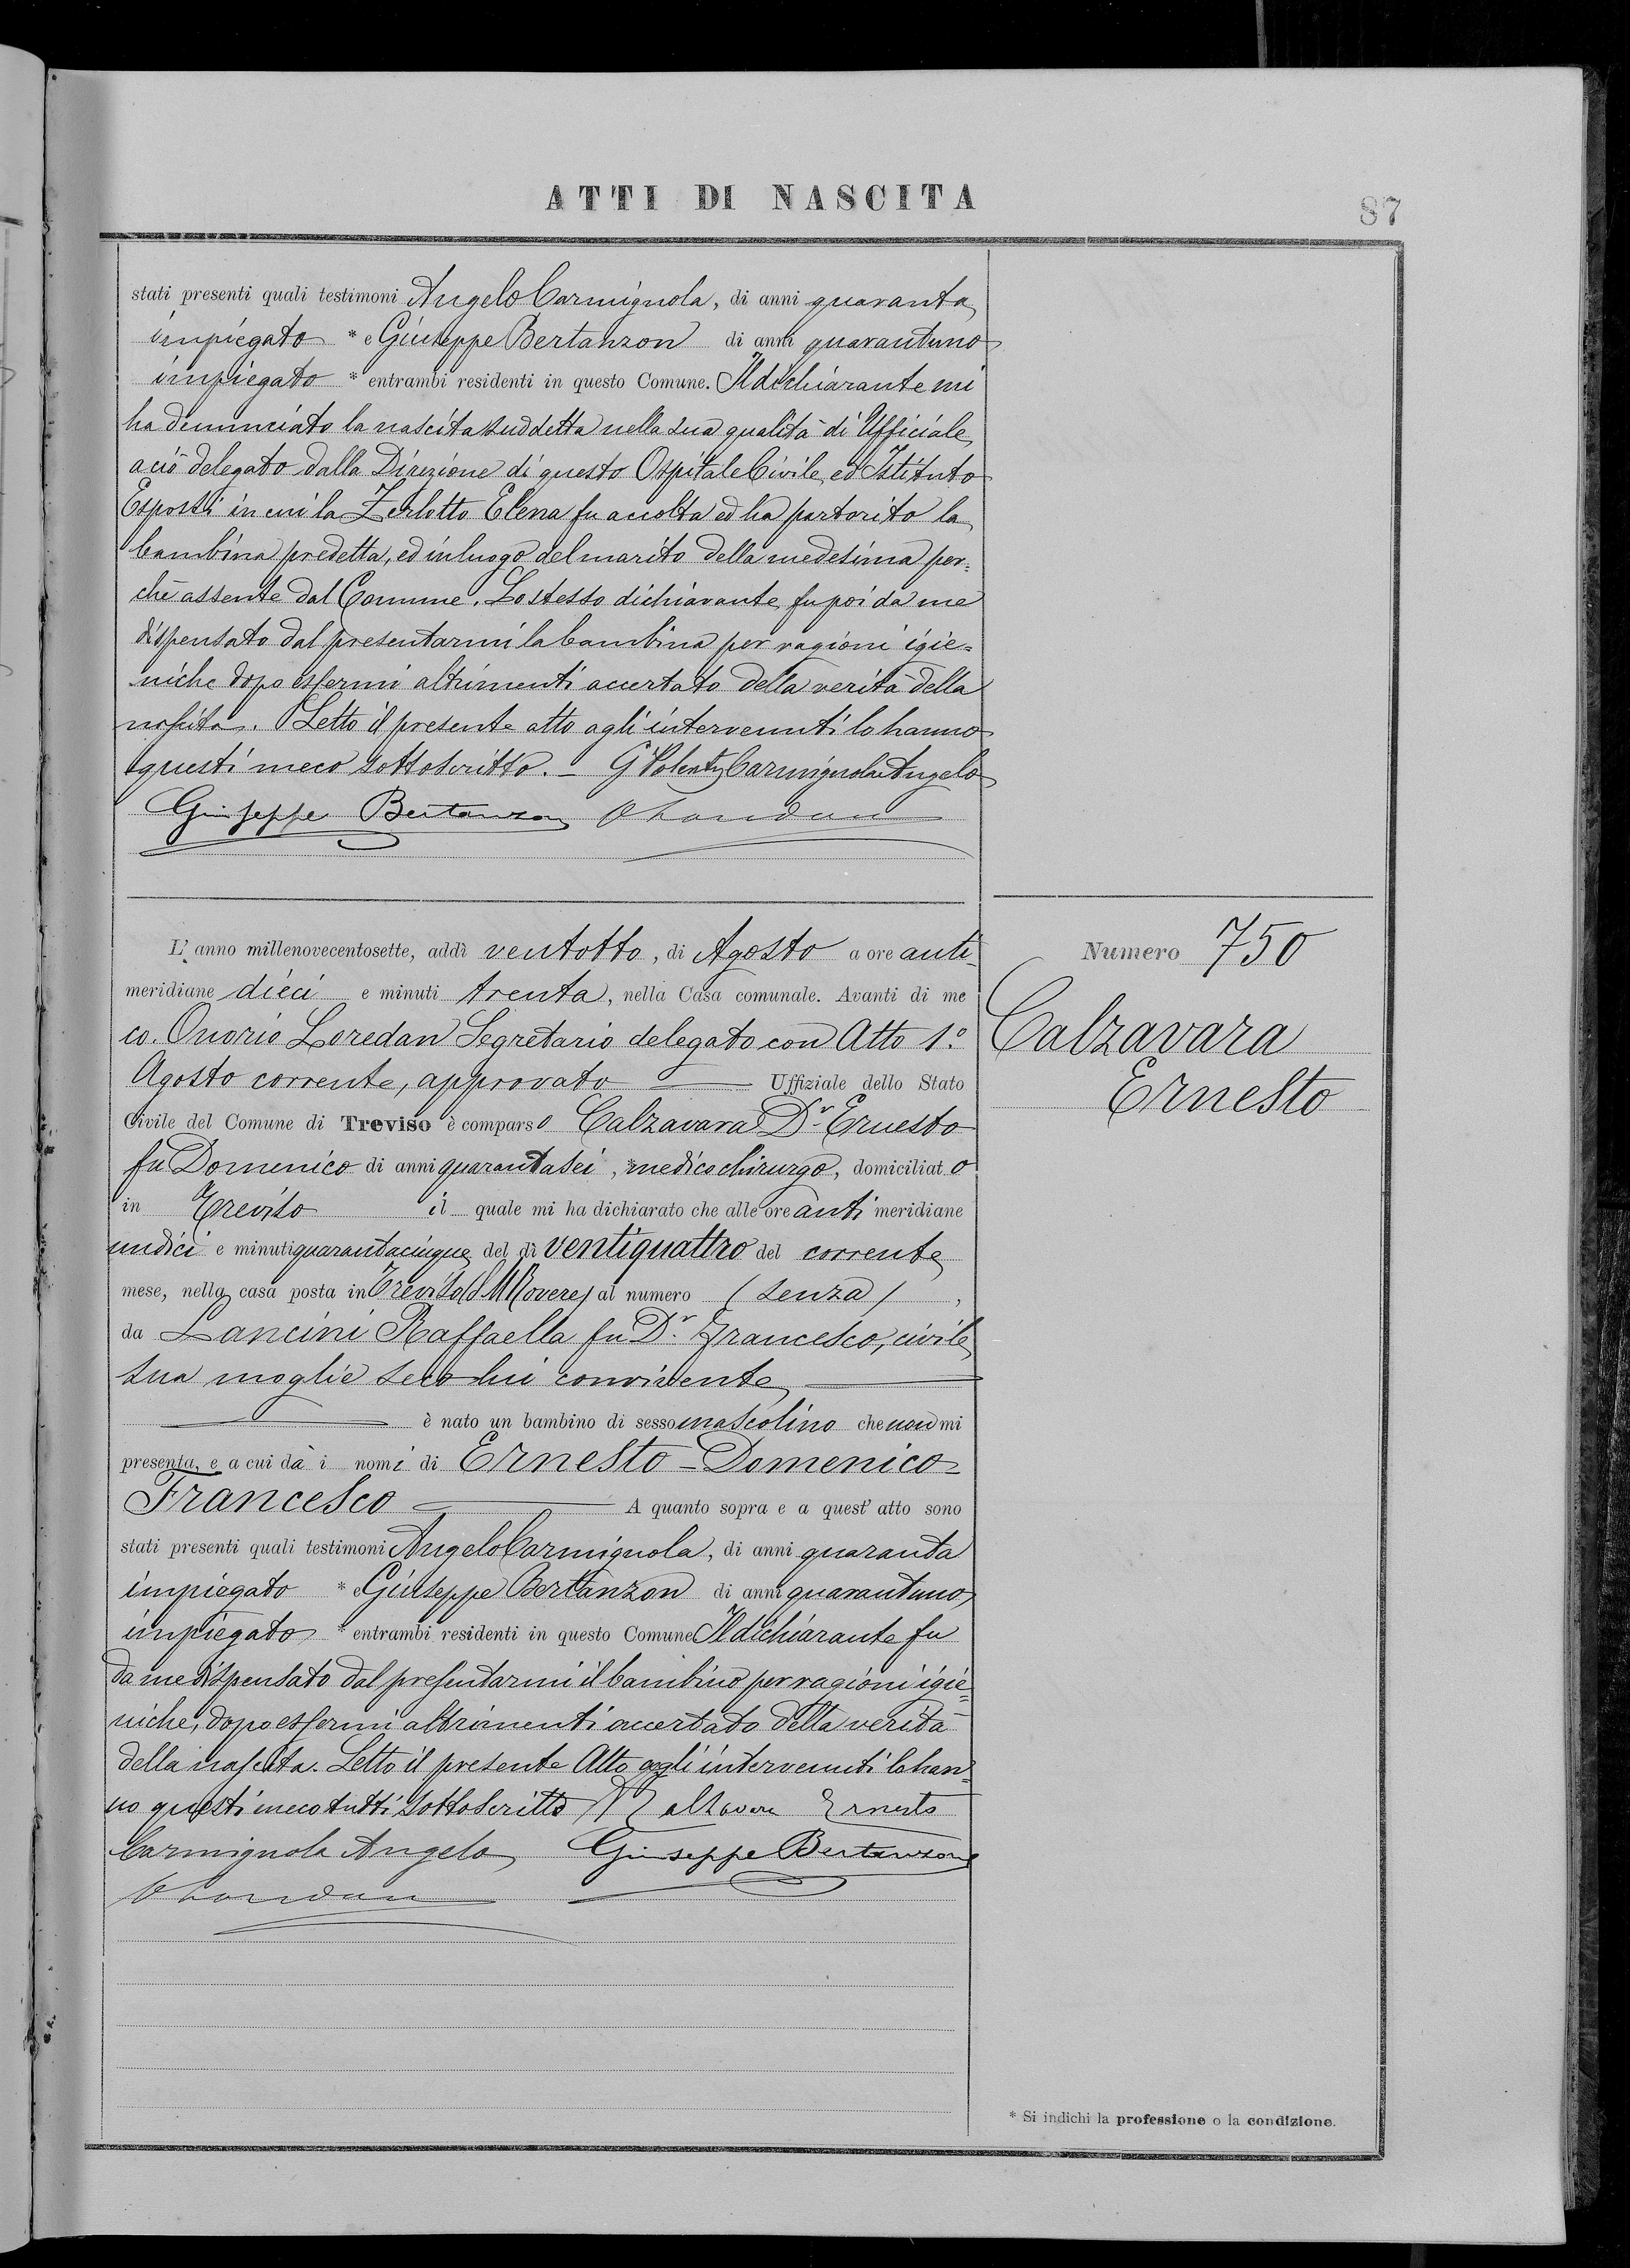 ATTI DI NASCITA
87
stati presenti quali testimoni Angelo Carmignola, di anni quaranta
impiegato * e Giuseppe Bertanzon di anni quarantuno
impiegato * entrambi residenti in questo Comune. Il dichiarante mi
ha denunciato la nascita suddetta nella sua qualità di Ufficiale
a ciò delegato dalla Direzione di questo Ospitale Civile, ed Istituto
Esposti in cui la Zerlotto Elena fu accolta ed ha partorito la
bambina predetta, ed in luogo del marito della medesima per=
chè assente dal Comune. Lo stesso dichiarante fu poi da me
dispensato dal presentarmi la bambina per ragioni igie=
niche dopo essermi altrimenti accertato della verità della
nascita. Letto il presente atto agli intervenuti lo hanno
questi meco sottoscritto. — G Carmignola Angelo
Giuseppe Bertanzon O Loredan
L'anno millenovecentosette, addì ventotto, di Agosto a ore anti-
meridiane dieci e minuti trenta, nella Casa comunale. Avanti di me
co. Onorio Loredan Segretario delegato con Atto 1.º
Agosto corrente, approvato — Uffiziale dello Stato
Civile del Comune di Treviso è comparso Calzavara Dr. Ernesto
fu Domenico di anni quarantasei, *medico chirurgo, domiciliato
in Treviso il quale mi ha dichiarato che alle ore anti meridiane
undici e minuti quarantacinque, del dì ventiquattro del corrente
mese, nella casa posta in Treviso (S M Rovere) al numero (senza),
da Lancini Raffaella fu Dr. Francesco, civile
sua moglie seco lui convivente —
— è nato un bambino di sesso mascolino che non mi
presenta, e a cui dà i nomi di Ernesto-Domenico-
Francesco — A quanto sopra e a quest'atto sono
stati presenti quali testimoni Angelo Carmignola, di anni quaranta
impiegato * e Giuseppe Bertanzon di anni quarantuno,
impiegato * entrambi residenti in questo Comune Il dichiarante fu
da me dispensato dal presentarmi il bambino per ragioni igie=
niche, dopo essermi altrimenti accertato della verità
della nascita. Letto il presente Atto agli intervenuti lo han=
no questi meco tutti sottoscritto Calzavara Ernesto
Carmignola Angelo Giuseppe Bertanzon
O Loredan
Numero 750
Calzavara
Ernesto
* Si indichi la professione o la condizione.